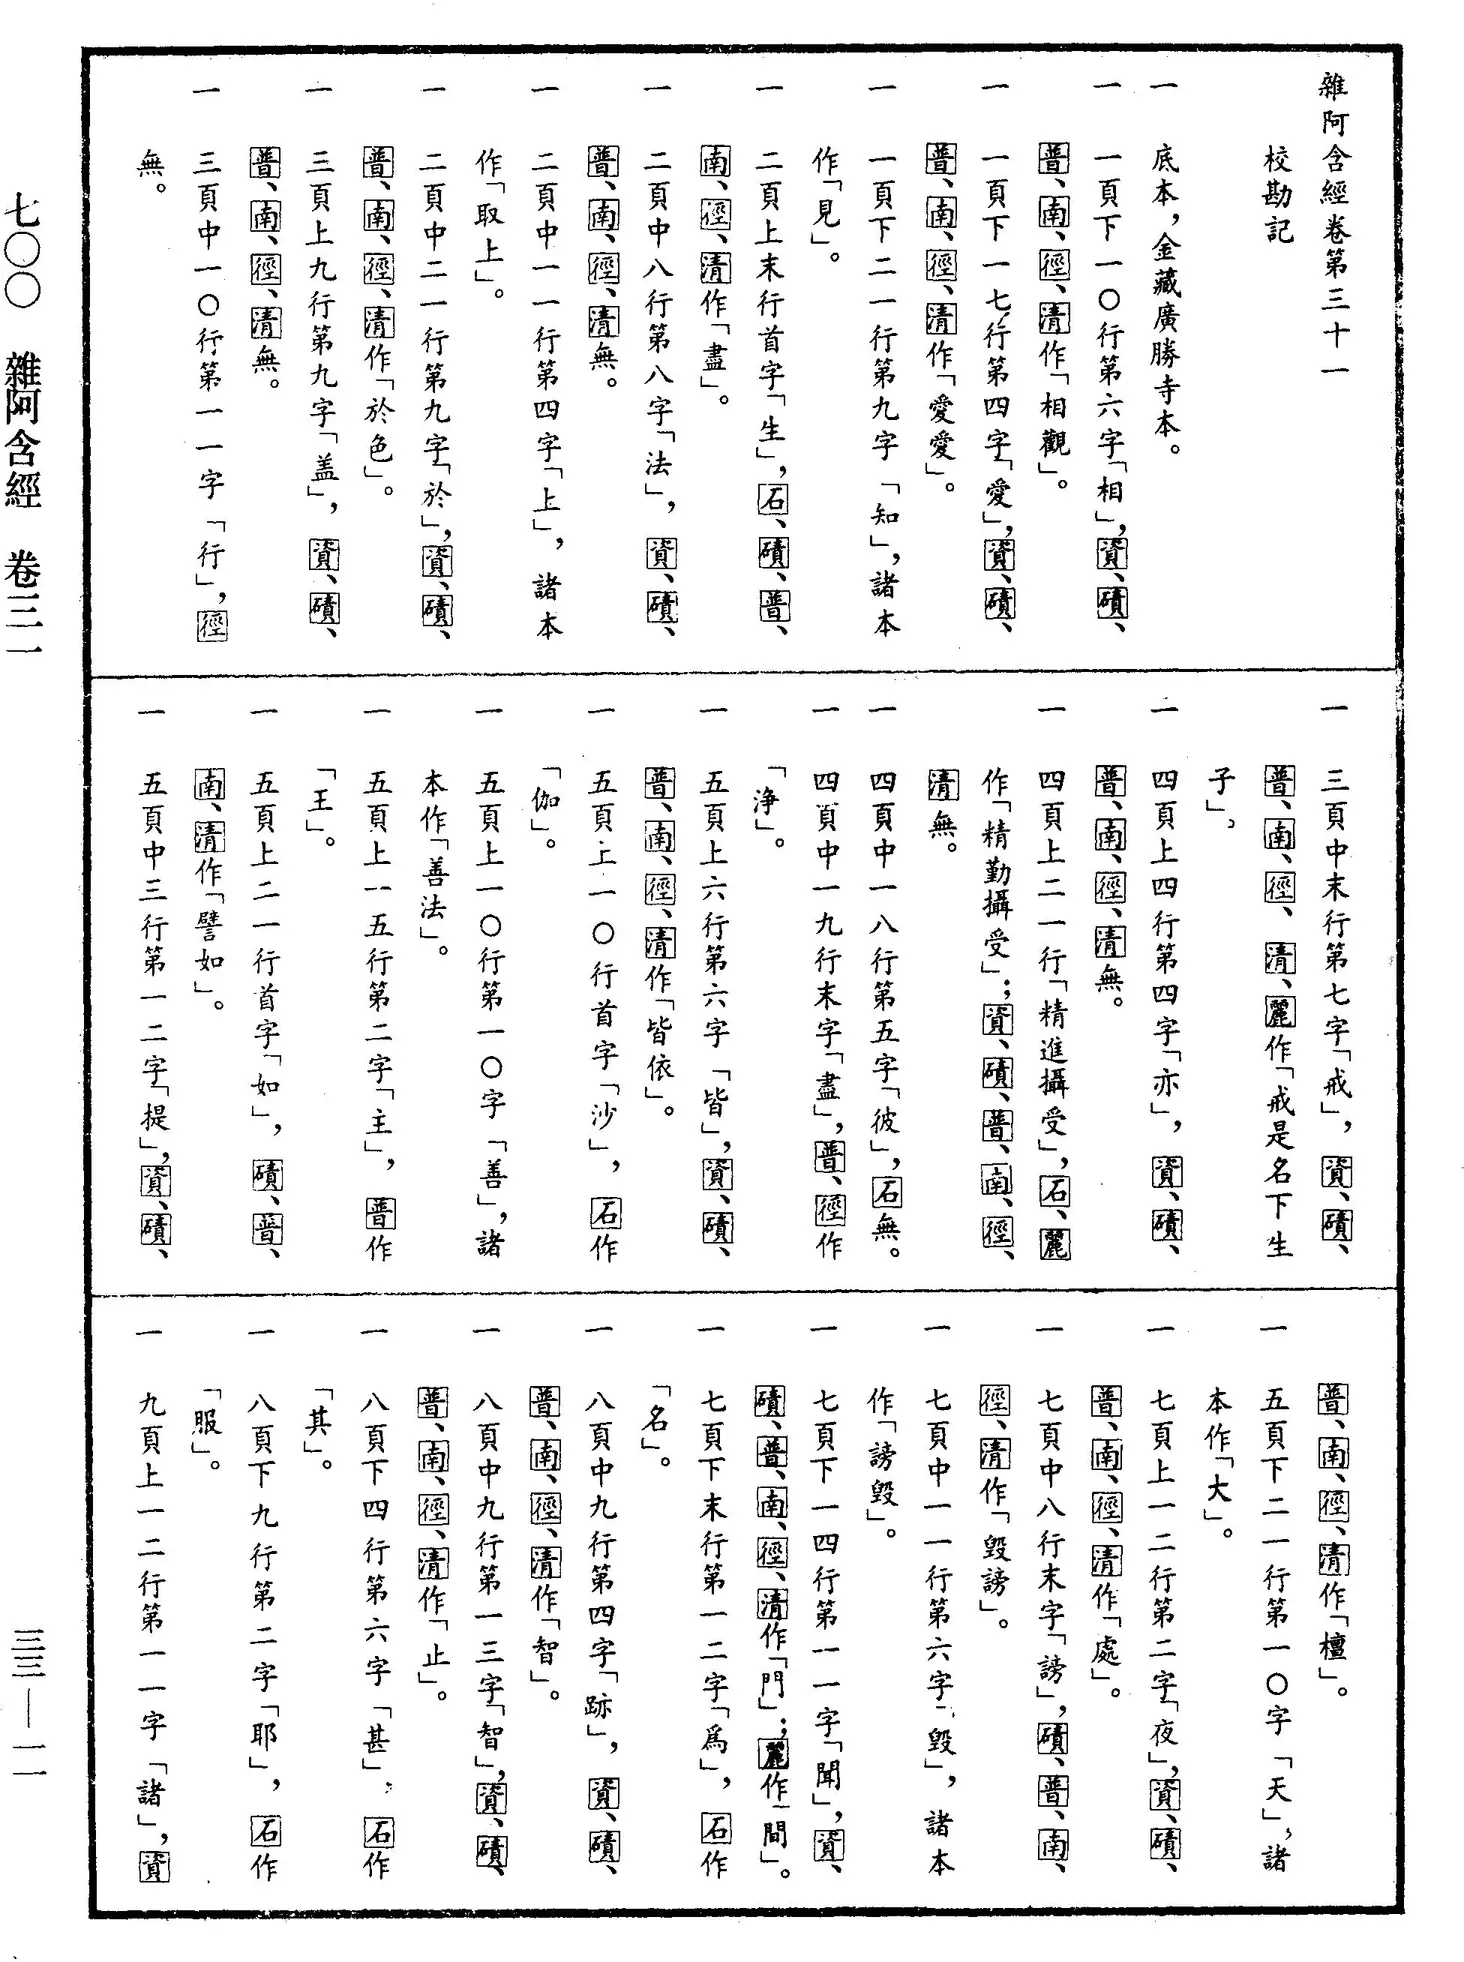 雜阿含經卷第三十一
校勘記
一 底本，金藏廣勝寺本。
一 一頁下一〇行第六字「相」，資、磧、
普、南、徑、清作「相觀」。
一 一頁下一七行第四字「愛」，資、磧、
普、南、徑、清作「愛愛」。
一 一頁下二一行第九字「知」，諸本
作「見」。
一 二頁上末行首字「生」，石、磧、普、
南、徑、清作「盡」。
一 二頁中八行第八字「法」，資、磧、
普、南、徑、清無。
一 二頁中一一行第四字「上」，諸本
作「取上」。
一 二頁中二一行第九字「於」，資、磧、
普、南、徑、清作「於色」。
一 三頁上九行第九字「盖」，資、磧、
普、南、徑、清無。
一 三頁中一〇行第一一字「行」，徑
無。
一 三頁中末行第七字「戒」，資、磧、
普、南、徑、清、麗作「戒是名下生
子」。
一 四頁上四行第四字「亦」，資、磧、
普、南、徑、清無。
一 四頁上二一行「精進攝受」，石、麗
作「精勤攝受」；資、磧、普、南、徑、
清無。
一 四頁中一八行第五字「彼」，石無。
一 四頁中一九行末字「盡」，普、徑作
「淨」。
一 五頁上六行第六字「皆」，資、磧、
普、南、徑、清作「皆依」。
一 五頁上一〇行首字「沙」，石作
「伽」。
一 五頁上一〇行第一〇字「善」，諸
本作「善法」。
一 五頁上一五行第二字「主」，普作
「王」。
一 五頁上二一行首字「如」，磧、普、
南、清作「譬如」。
一 五頁中三行第一二字「提」，資、磧、
普、南、徑、清作「檀」。
一 五頁下二一行第一〇字「天」，諸
本作「大」。
一 七頁上一二行第二字「夜」，資、磧、
普、南、徑、清作「處」。
一 七頁中八行末字「謗」，磧、普、南、
徑、清作「毀謗」。
一 七頁中一一行第六字「毀」，諸本
作「謗毀」。
一 七頁下一四行第一一字「聞」，資、
磧、普、南、徑、清作「門」；麗作「間」。
一 七頁下末行第一二字「為」，石作
「名」。
一 八頁中九行第四字「跡」，資、磧、
普、南、徑、清作「智」。
一 八頁中九行第一三字「智」，資、磧、
普、南、徑、清作「止」。
一 八頁下四行第六字「甚」，石作
「其」。
一 八頁下九行第二字「耶」，石作
「服」。
一 九頁上一二行第一一字「諸」，資
七〇〇 雜阿含經 卷三一
三三—一一